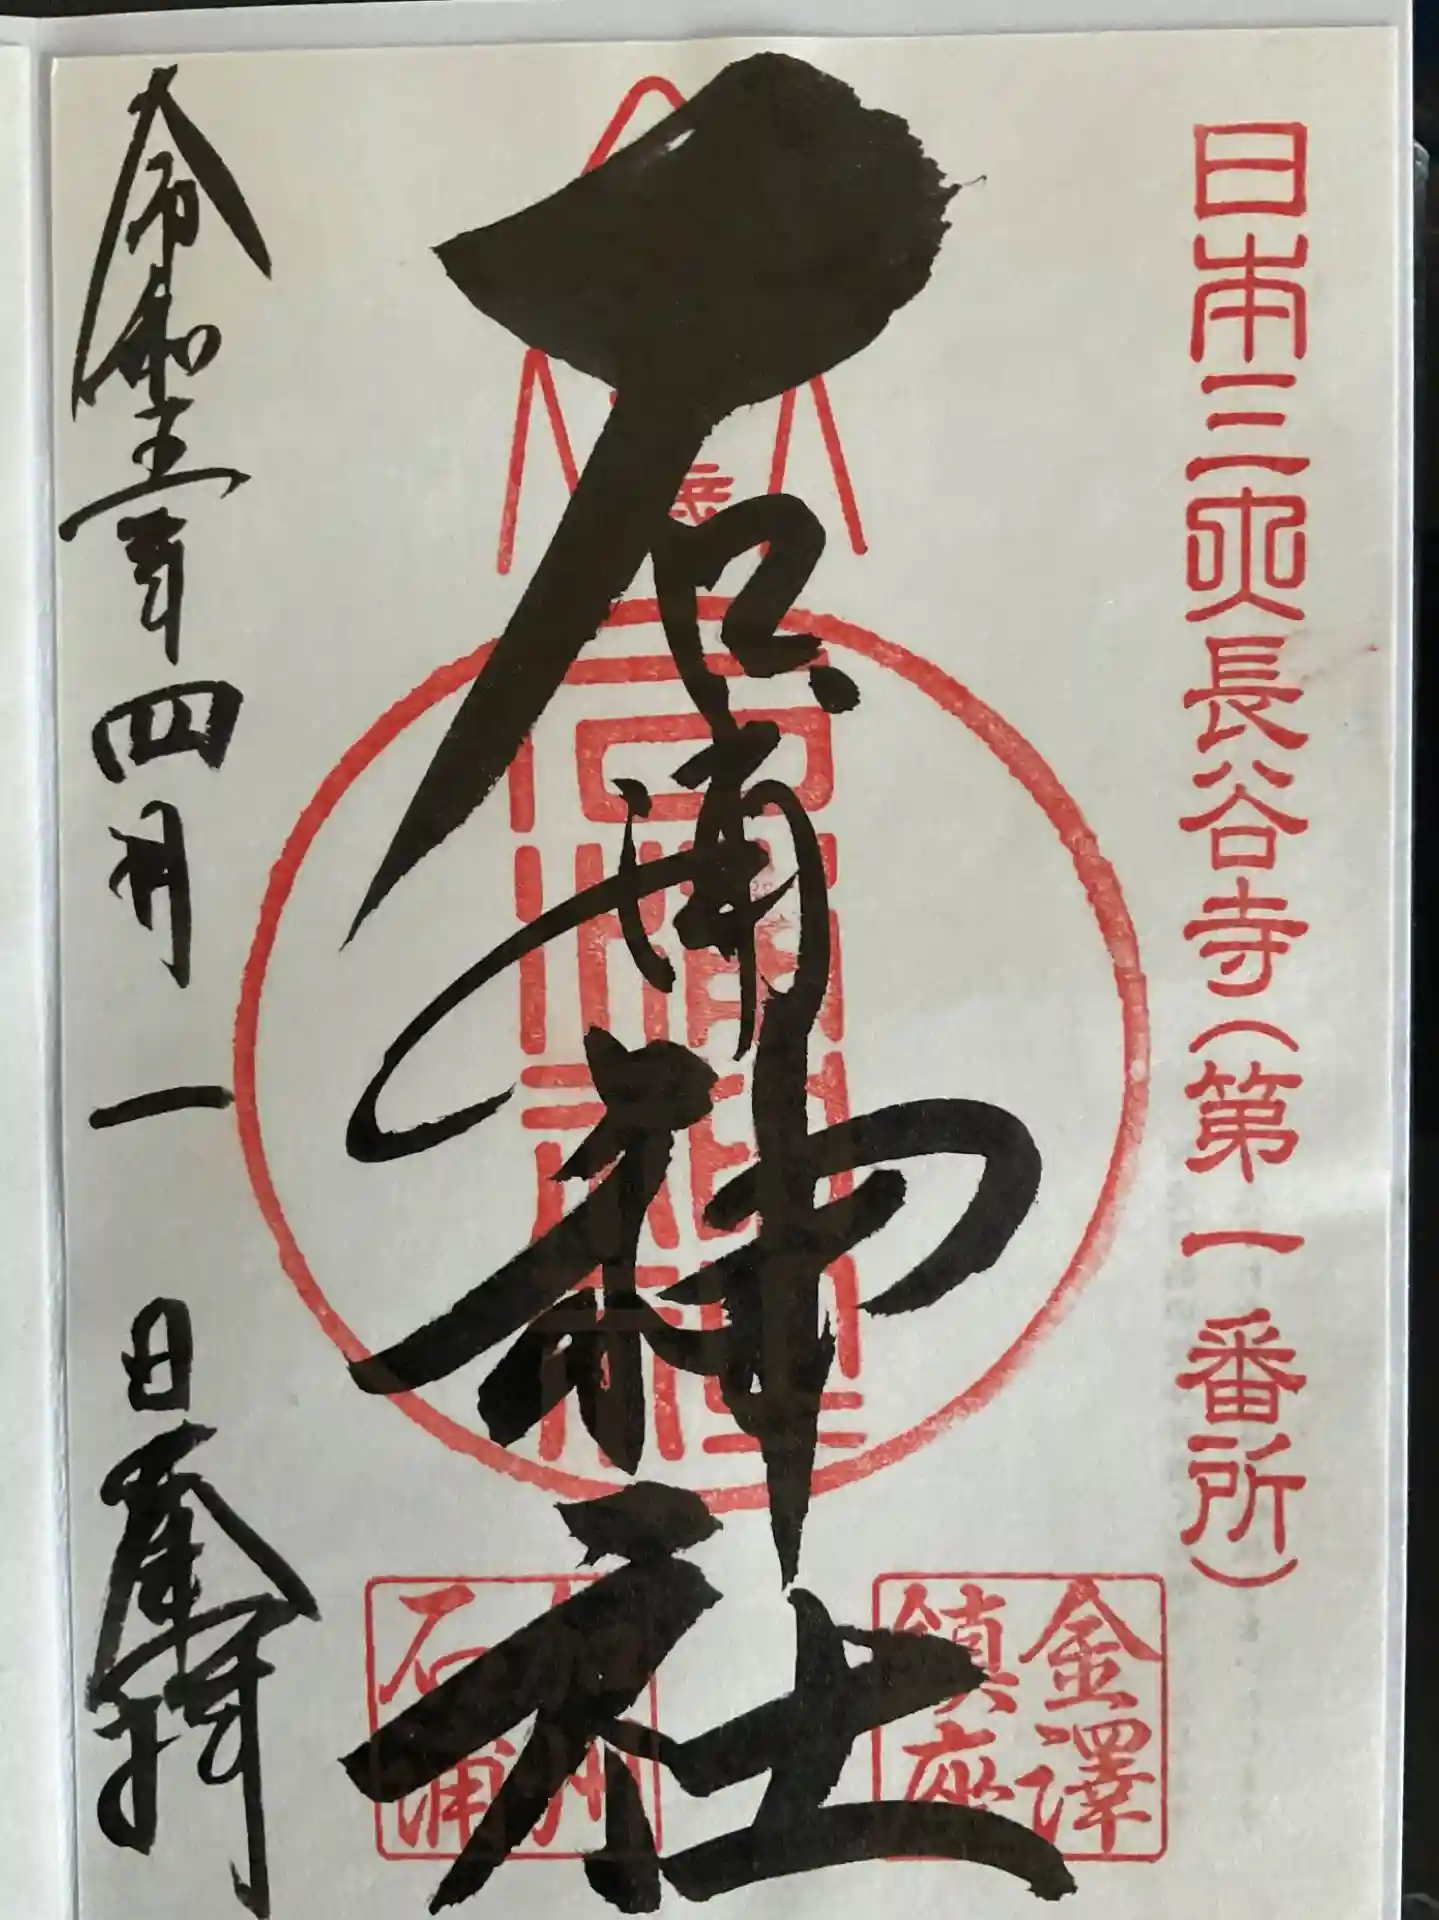 日本三大長谷寺(第一番所)
石浦神社
金澤
鎮座
加州
石浦
令和五年四月一日奉拝